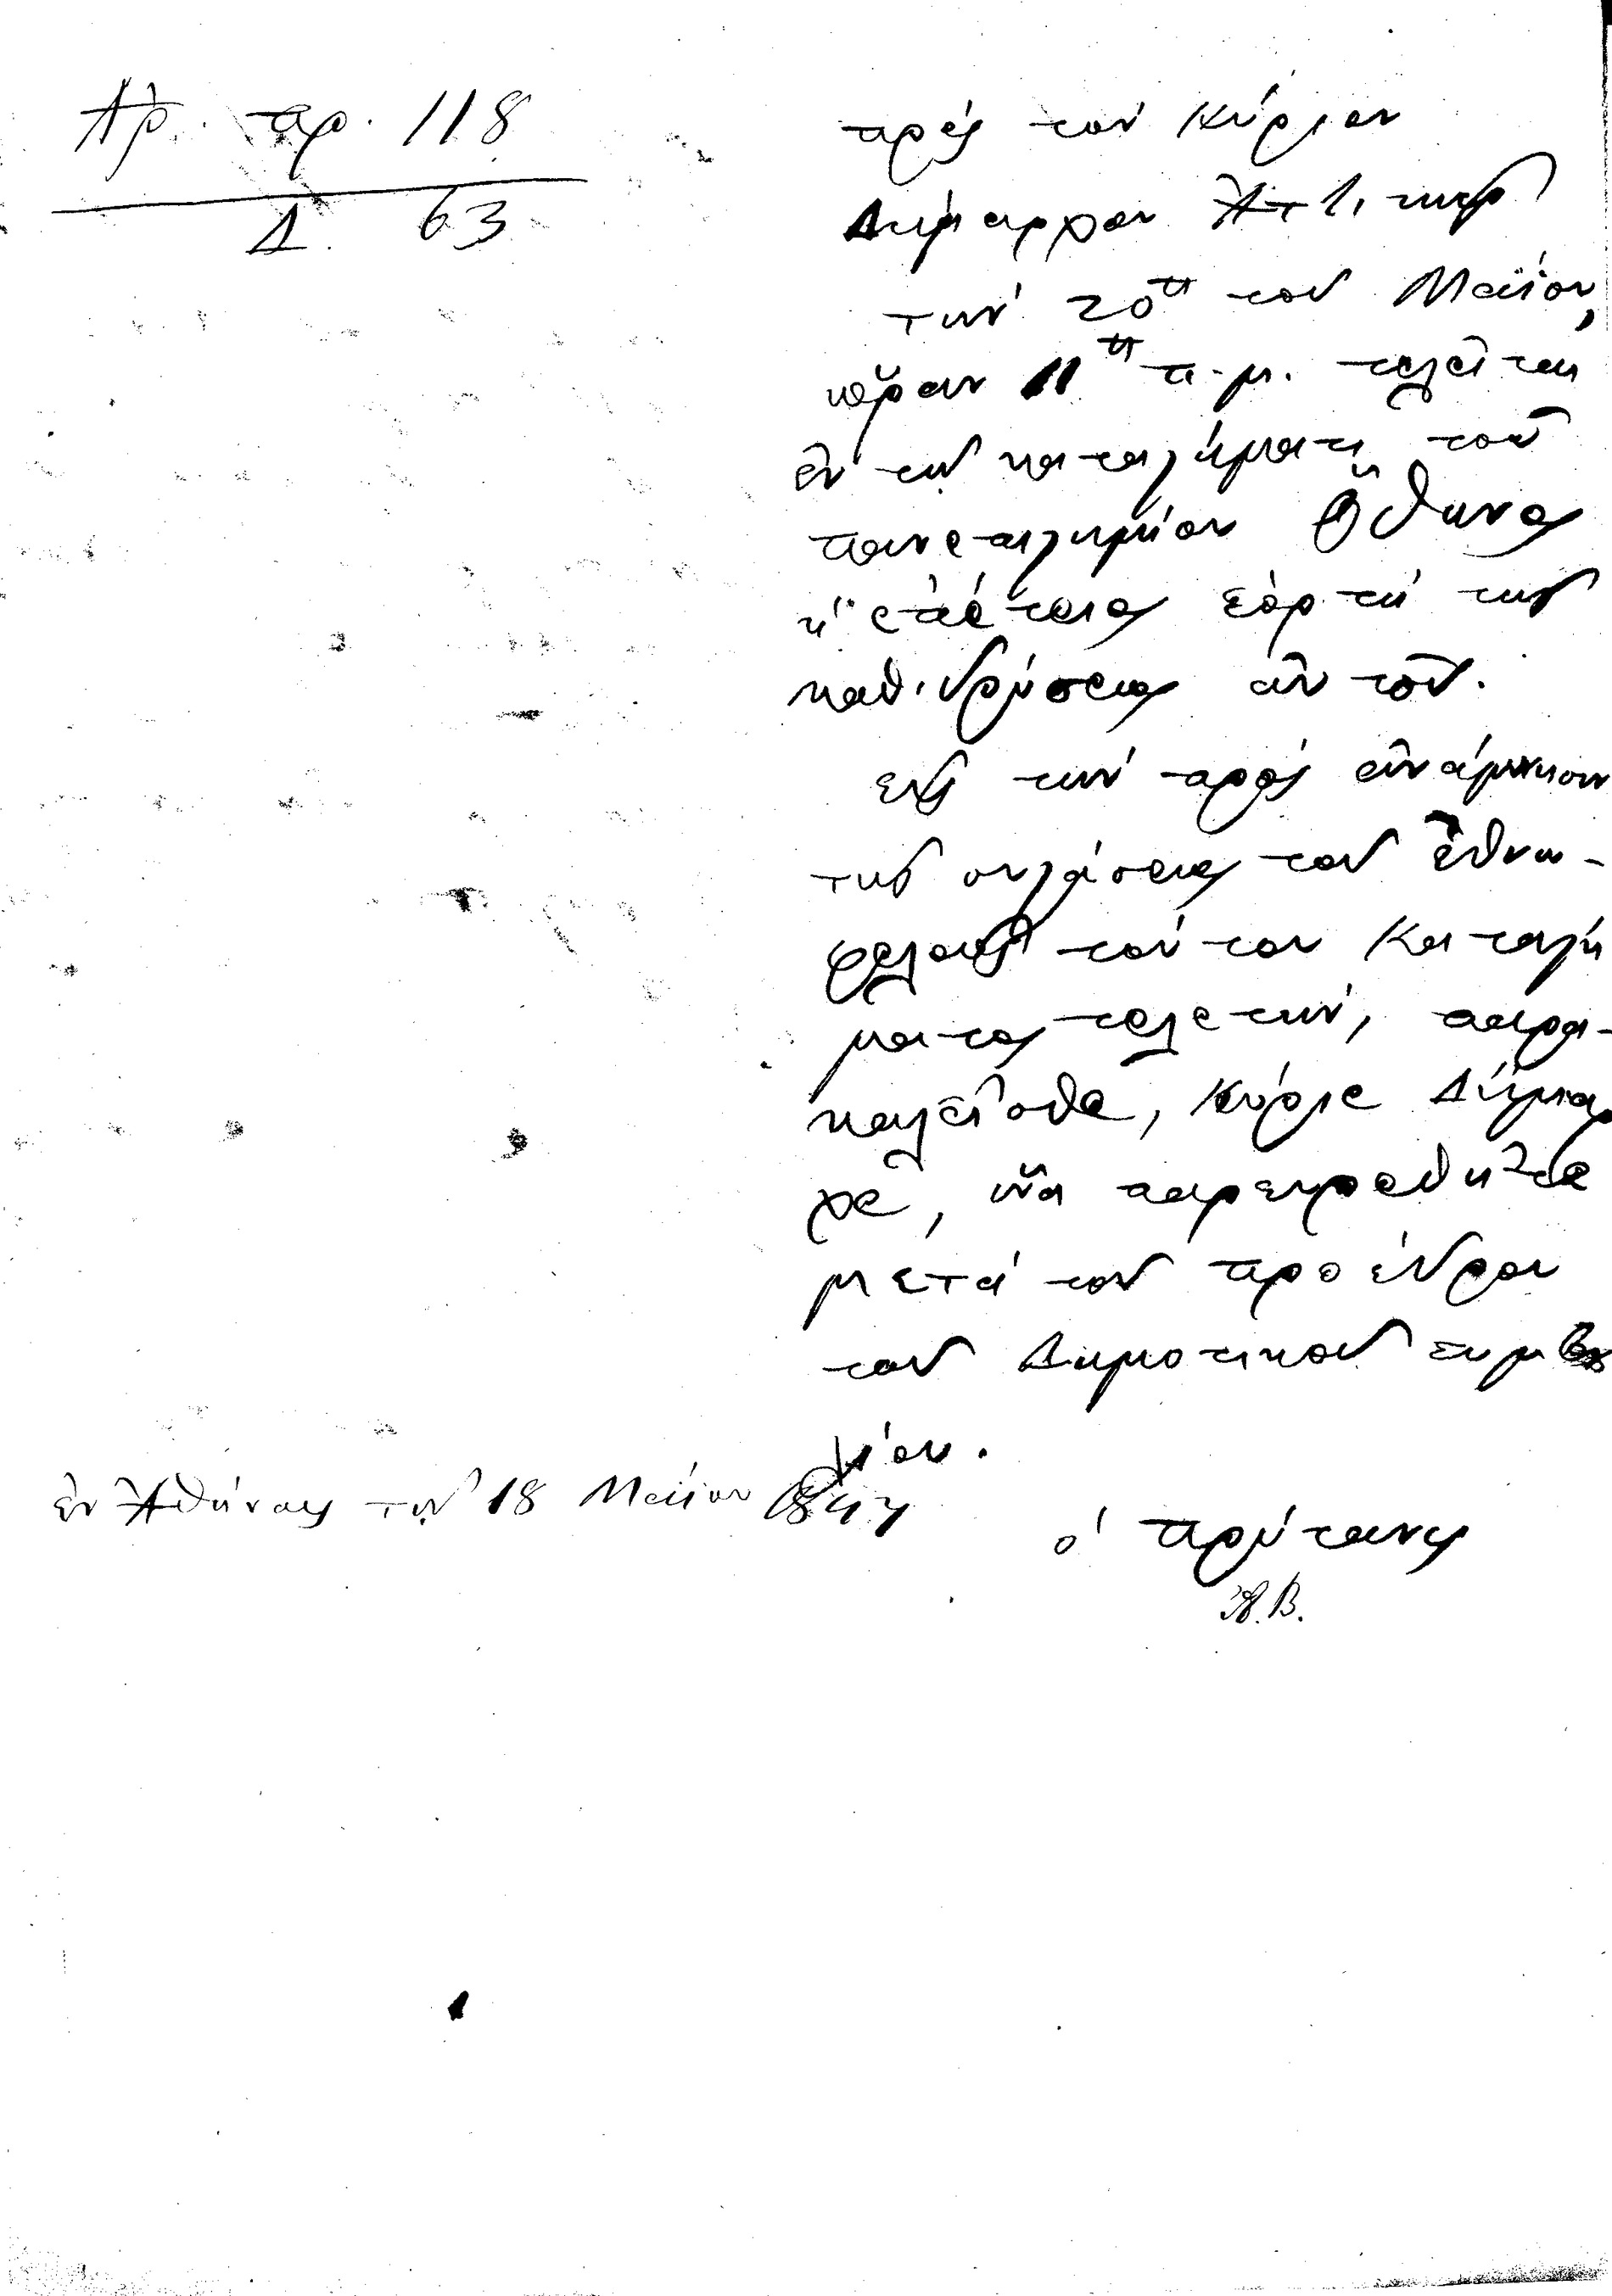 Ἀρ. πρ. 118
Δ. 63
πρός τόν Κύριον
Δήμαρχον Ἀττικῆς
τήν 20η τοῦ Μαΐου,
ὥραν 11η π.μ. τελεῖται
ἐν τῷ καταλύματι τοῦ
πανεπιστημίου Ὄθωνος
ἡ ἐπέτειος ἑορτή τῆς
καθιδρύσεως αὐτοῦ.
εἰς τήν πρός ἀνάμνησιν
τῆς συστάσεως τοῦ ἐθνω-
φελοῦς τούτου Καταστή
ματος τελετήν, παρα-
καλεῖσθε, Κύριε Δήμαρ
χε, ἵνα παρευρεθῆτε
μετά τοῦ προέδρου
τοῦ Δημοτικοῦ συμβου
λίου.
ἐν Ἀθήναις τῇ 18 Μαΐου 1847
ὁ πρύτανις
Α. Β.